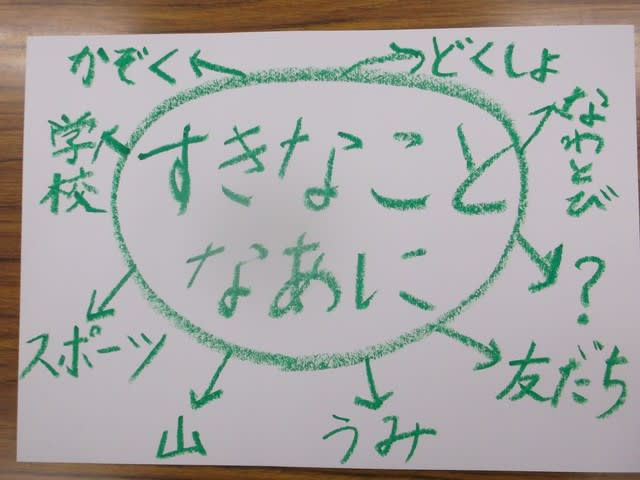 すきなこと
なあに
かぞく
どくしょ
なわとび
?
友だち
うみ
山
スポーツ
学校